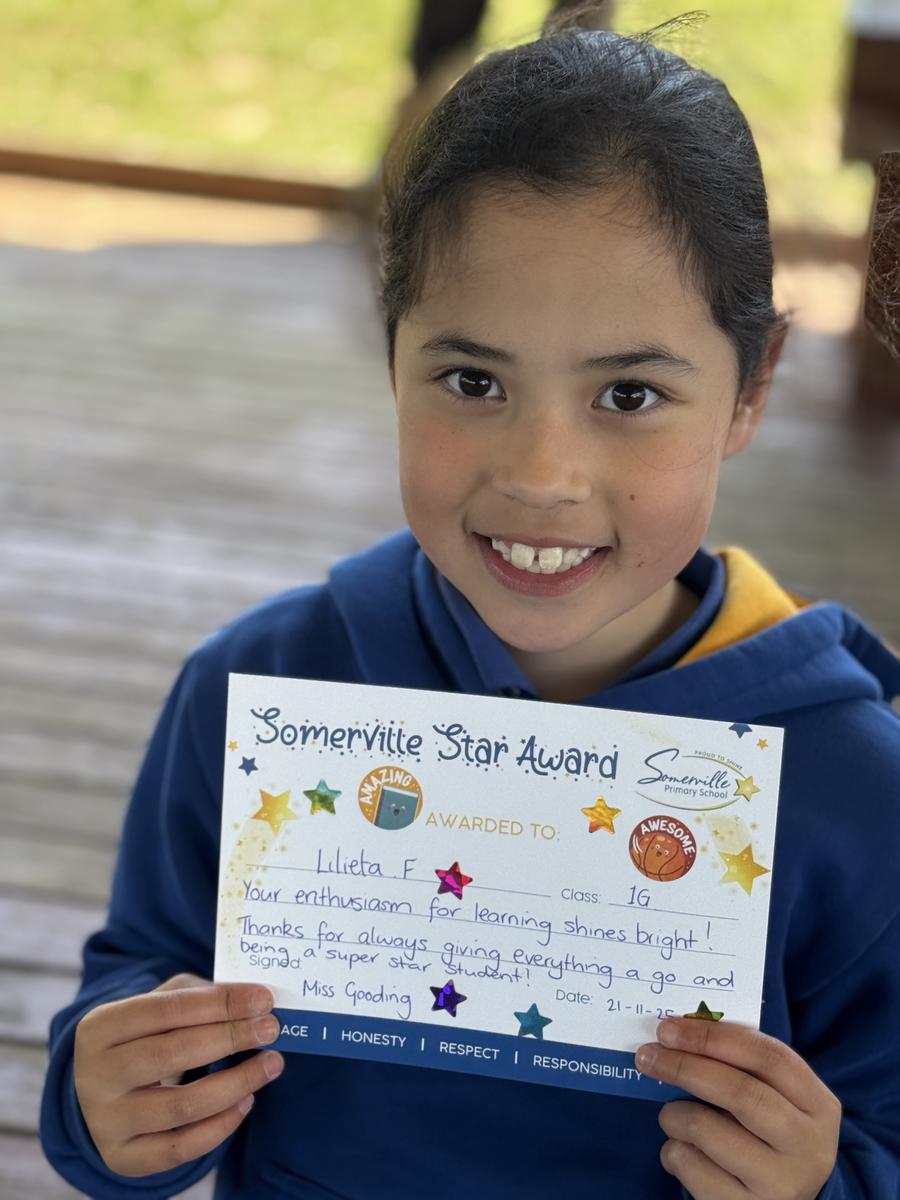 Somerville Star Award
PROUD TO SHINE
Somerville
Primary School
AMAZING
AWARDED TO:
AWESOME
Lilieta F
Class: 1G
Your enthusiasm for learning shines bright!
Thanks for always giving everything a go and
being a super star student!
Signed:
Miss Gooding
Date: 21-11-25
AGE | HONESTY | RESPECT | RESPONSIBILITY